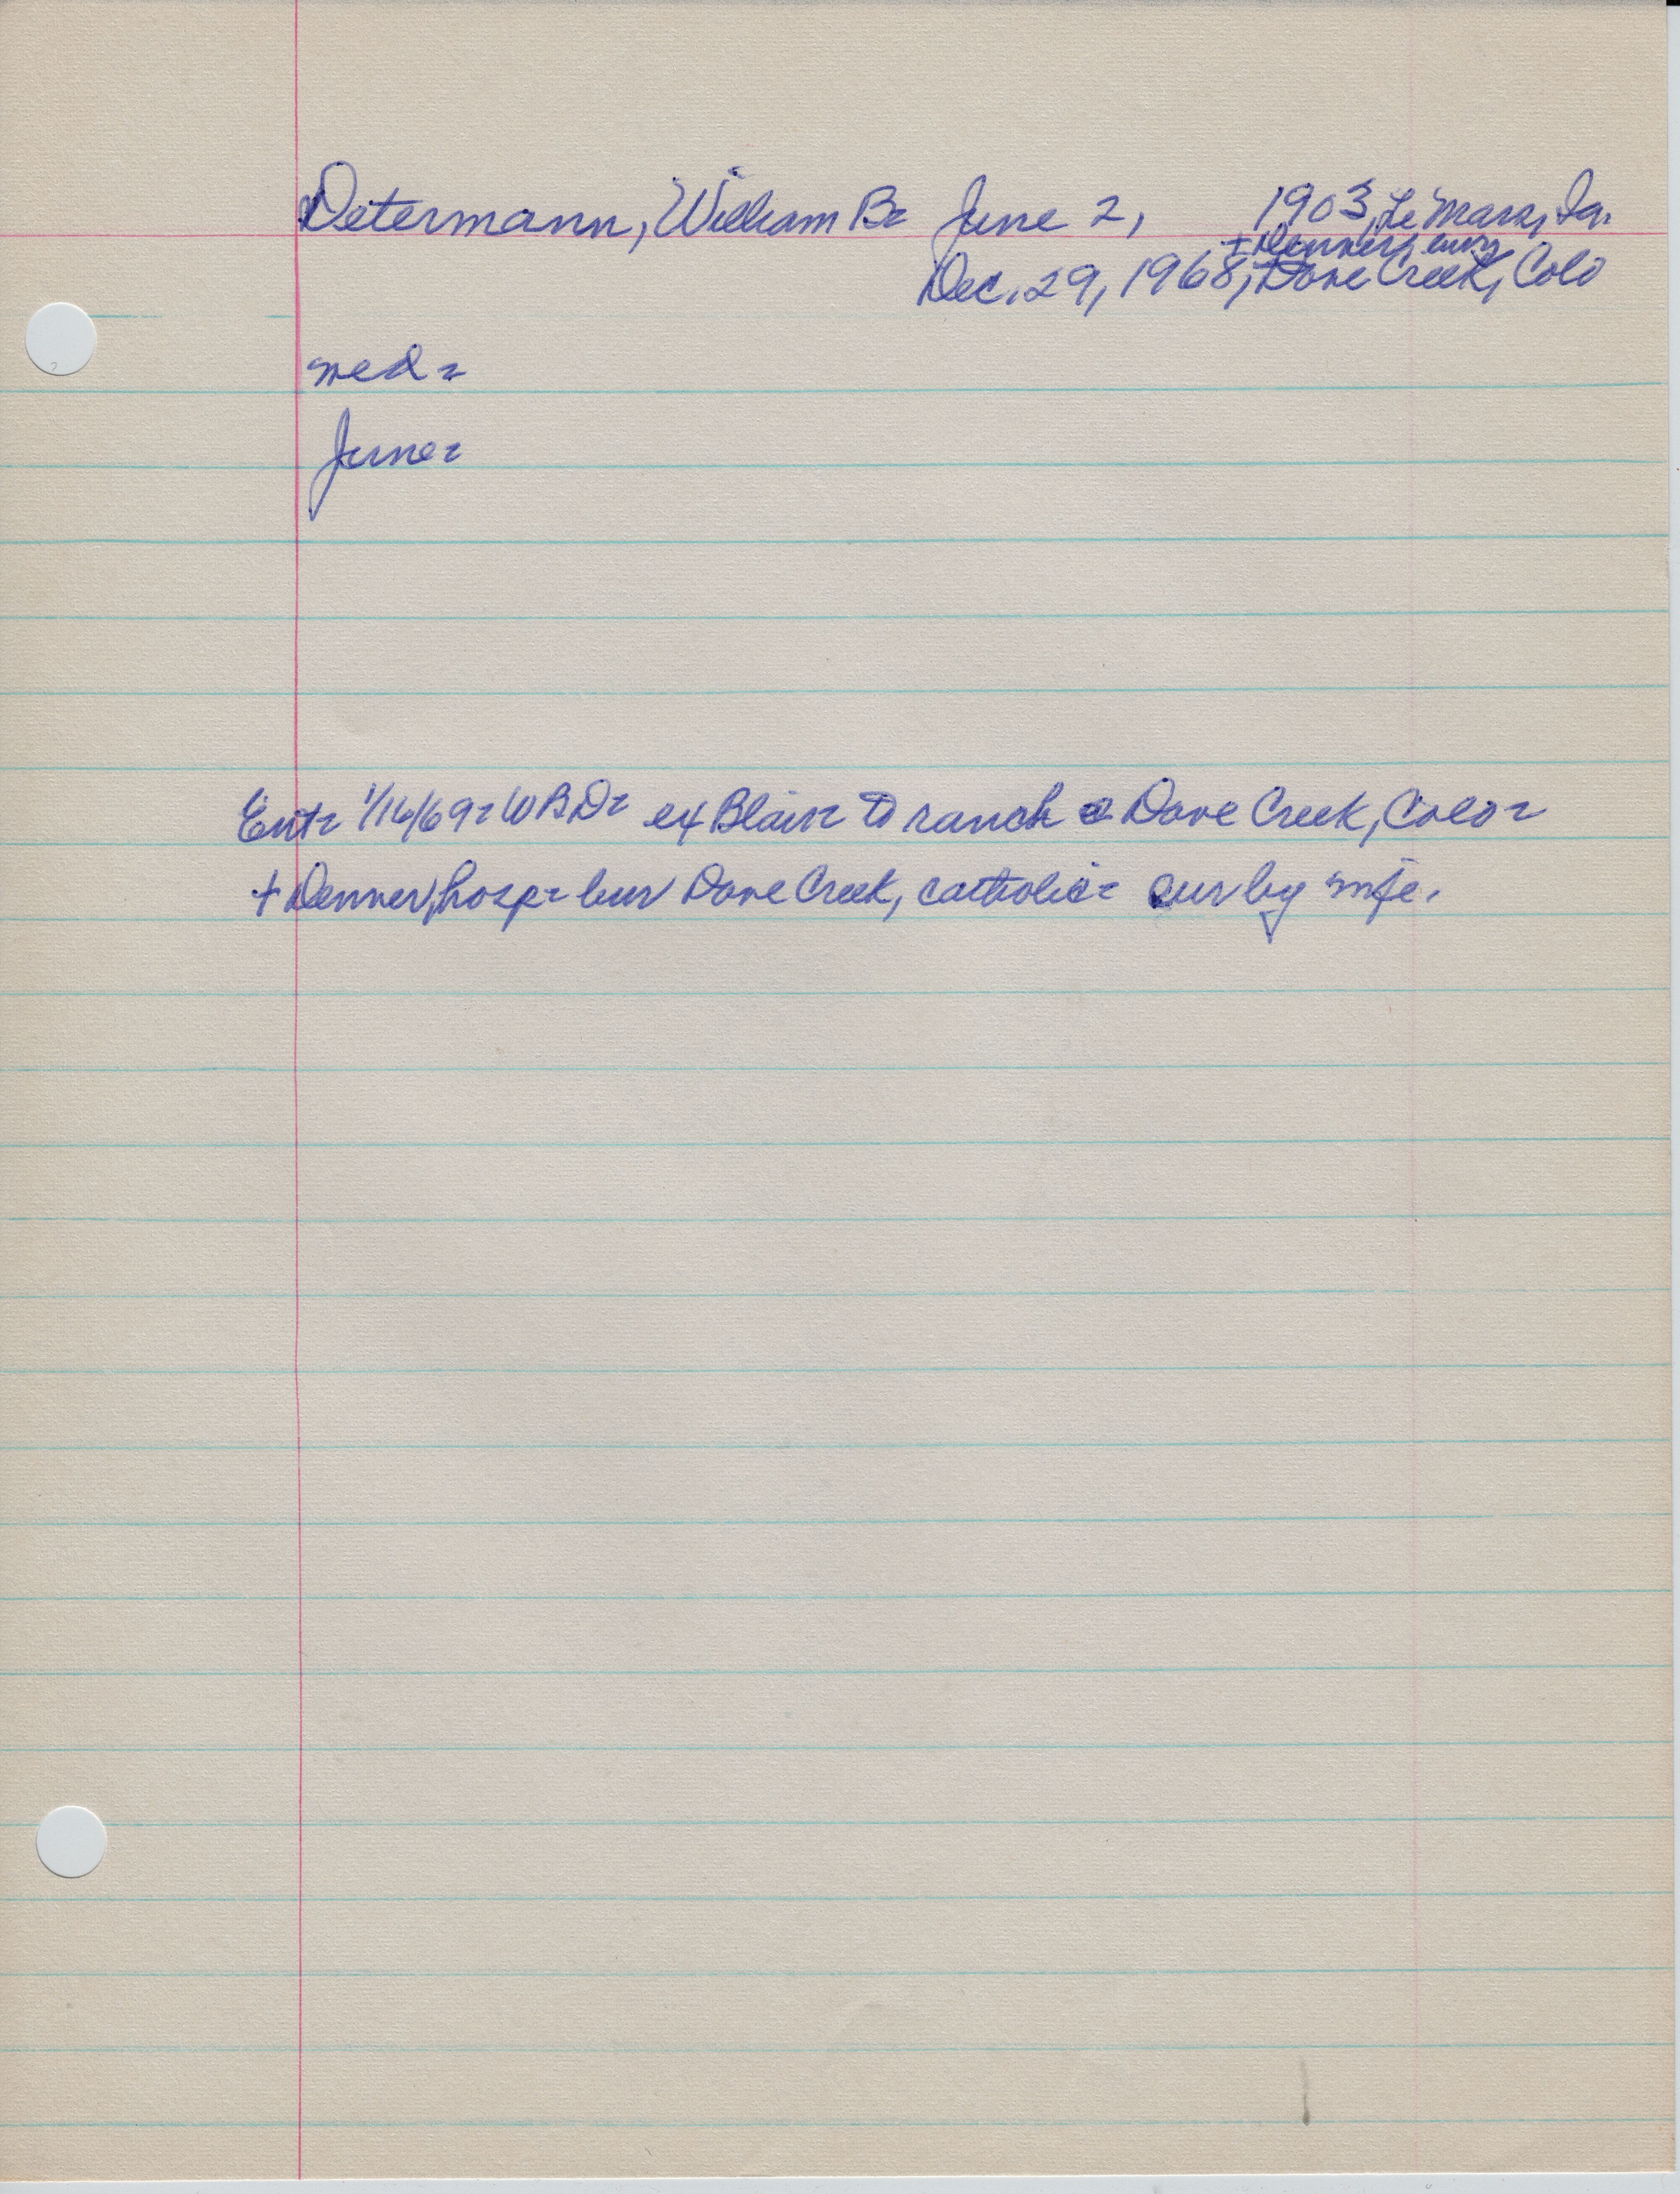 Determann, William B= June 2, 1903, Le Mars, Ia.
+ Denver, bur
Dec. 29, 1968, Dove Creek, Colo
med=
June=
Ent= 1/16/69= WBD= ex Blair= to ranch @ Dove Creek, Colo=
+ Denver, hosp= bur Dove Creek, catholic= sur by wife.